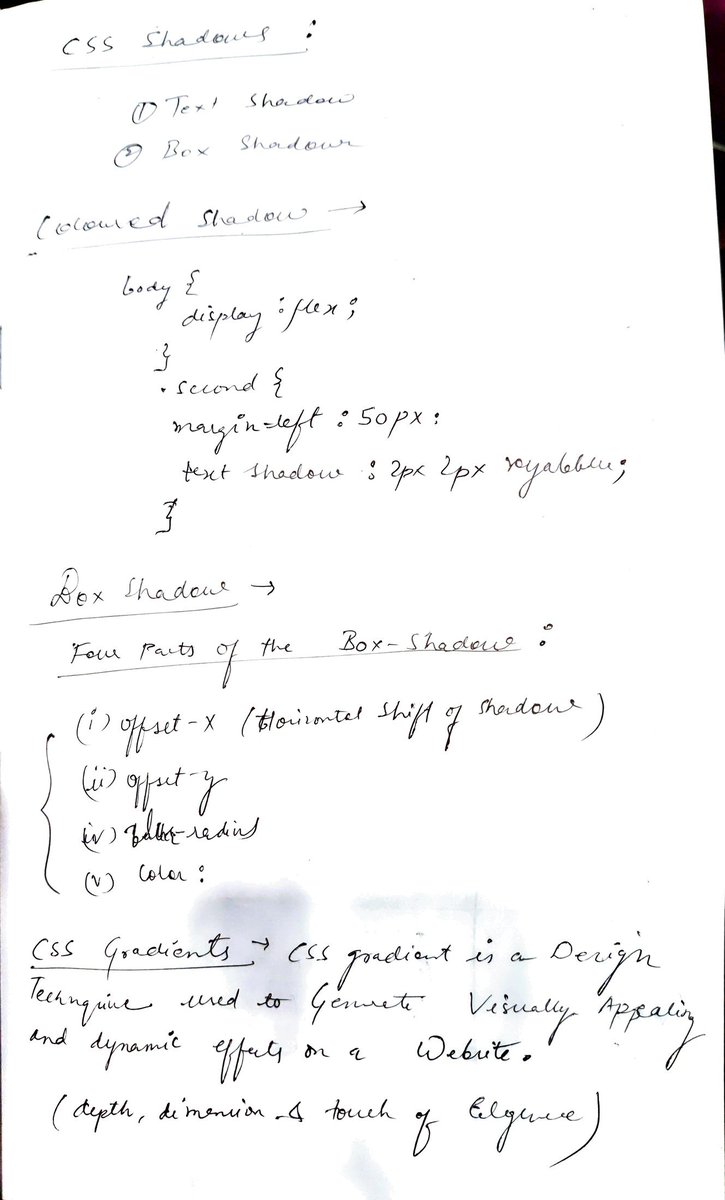 CSS Shadows :
① Text Shadow
② Box Shadow
Coloured Shadow →
body {
display : flex ;
}
. second {
margin-left : 50px :
text shadow : 2px 2px royalblue;
}
Box Shadow →
Four Parts of the Box-Shadow :
(i) offset-X (Horizontal Shift of Shadow)
(ii) offset-y
(iv) -radius
(v) Color :
CSS Gradients → CSS gradient is a Design
Technquine used to Generete Visually Appealing
and dynamic effects on a Website.
(depth, dimension & touch of Elgence)